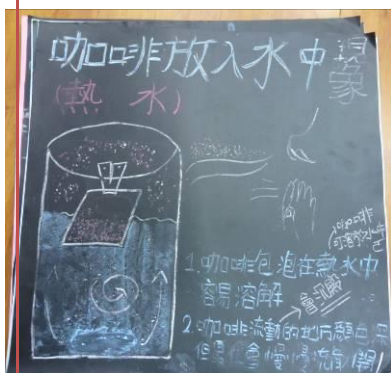 咖啡放入水中現象
(熱水)
咖啡
可溶於水中
1.咖啡包泡在熱水中
容易溶解
會沉澱
2.咖啡流動的地方顏色
但是 會慢慢流散開